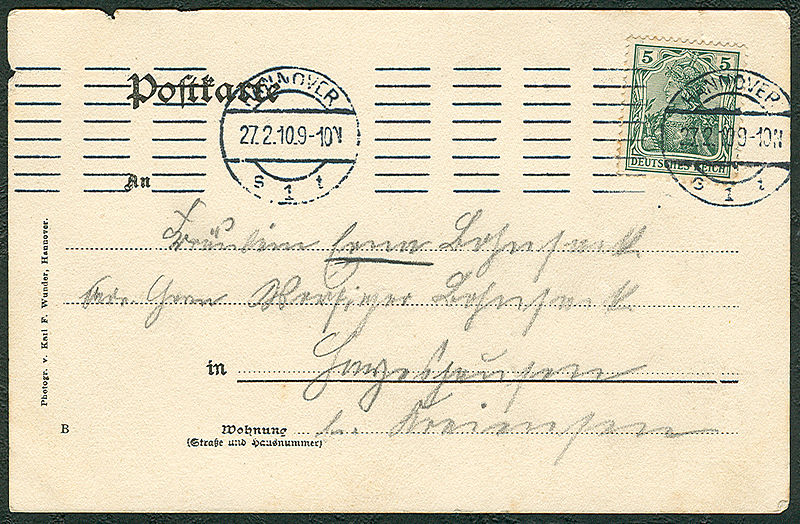 Postkarte
HANNOVER
27.2.10.9-10V
S 1 t
5 5
DEUTSCHES REICH
HANNOVER
27.2.10.9-10V
S 1 t
An
Fräulein Erna
Adr. Herrn
in
b. Kreiensen
Wohnung
(Straße und Hausnummer)
B
Photogr. v. Karl F. Wunder, Hannover.